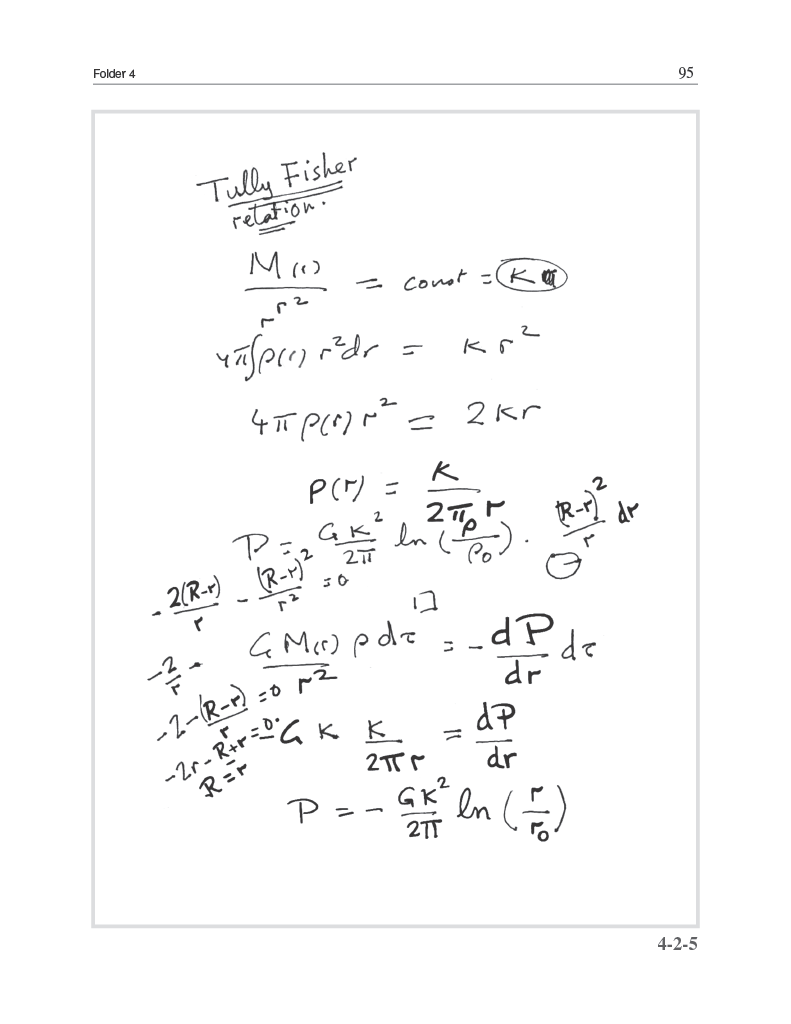 Folder 4 95
Tully Fisher
relation.
M(r) / r² = const = K
4π∫ρ(r) r²dr = K r²
4π ρ(r) r² = 2Kr
ρ(r) = K / 2π r
P = GK² / 2π ln (ρ / ρ₀) . (R-r)² / r dr
- 2(R-r) / r - (R-r)² / r² = 0
G M(r) ρ dτ / r² = - dP / dr dτ
- 2 / r -
-2 - (R-r) / r = 0
-2r - R + r = 0.
R = r
G K K / 2π r = dP / dr
P = - GK² / 2π ln (r / r₀)
4-2-5